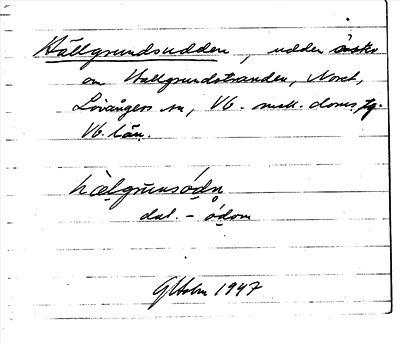 Hällgrundsudden, udden
om Hallgrundstranden, Noret,
Lövångers sn, Vb. small. doms,tg.
Vb. län.
hælgrunsódn
dat. – ódom
G Holm 1947